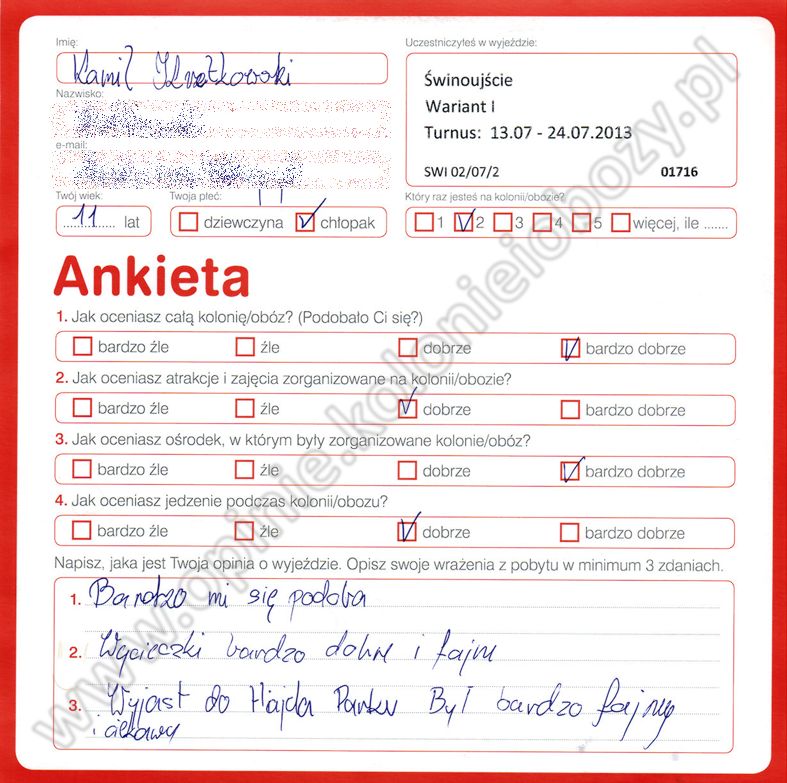 Imię:
Kamil
Uczestniczyłeś w wyjeździe:
Świnoujście
Wariant I
Turnus: 13.07 - 24.07.2013
SWI 02/07/2 01716
Nazwisko:
e-mail:
Twój wiek:
11 lat
Twoja płeć:
dziewczyna chłopak
Który raz jesteś na kolonii/obozie?
1 2 3 4 5 więcej, ile .......
Ankieta
1. Jak oceniasz całą kolonię/obóz? (Podobało Ci się?)
bardzo źle źle dobrze bardzo dobrze
2. Jak oceniasz atrakcje i zajęcia zorganizowane na kolonii/obozie?
bardzo źle źle dobrze bardzo dobrze
3. Jak oceniasz ośrodek, w którym były zorganizowane kolonie/obóz?
bardzo źle źle dobrze bardzo dobrze
4. Jak oceniasz jedzenie podczas kolonii/obozu?
bardzo źle źle dobrze bardzo dobrze
Napisz, jaka jest Twoja opinia o wyjeździe. Opisz swoje wrażenia z pobytu w minimum 3 zdaniach.
1. Bardzo mi się podoba
2. Wycieczki bardzo dobre i fajne
3. Wyjast do Hajda Parku Był bardzo fajny
i ciekawy
www.opinie.kolonieiobozy.pl